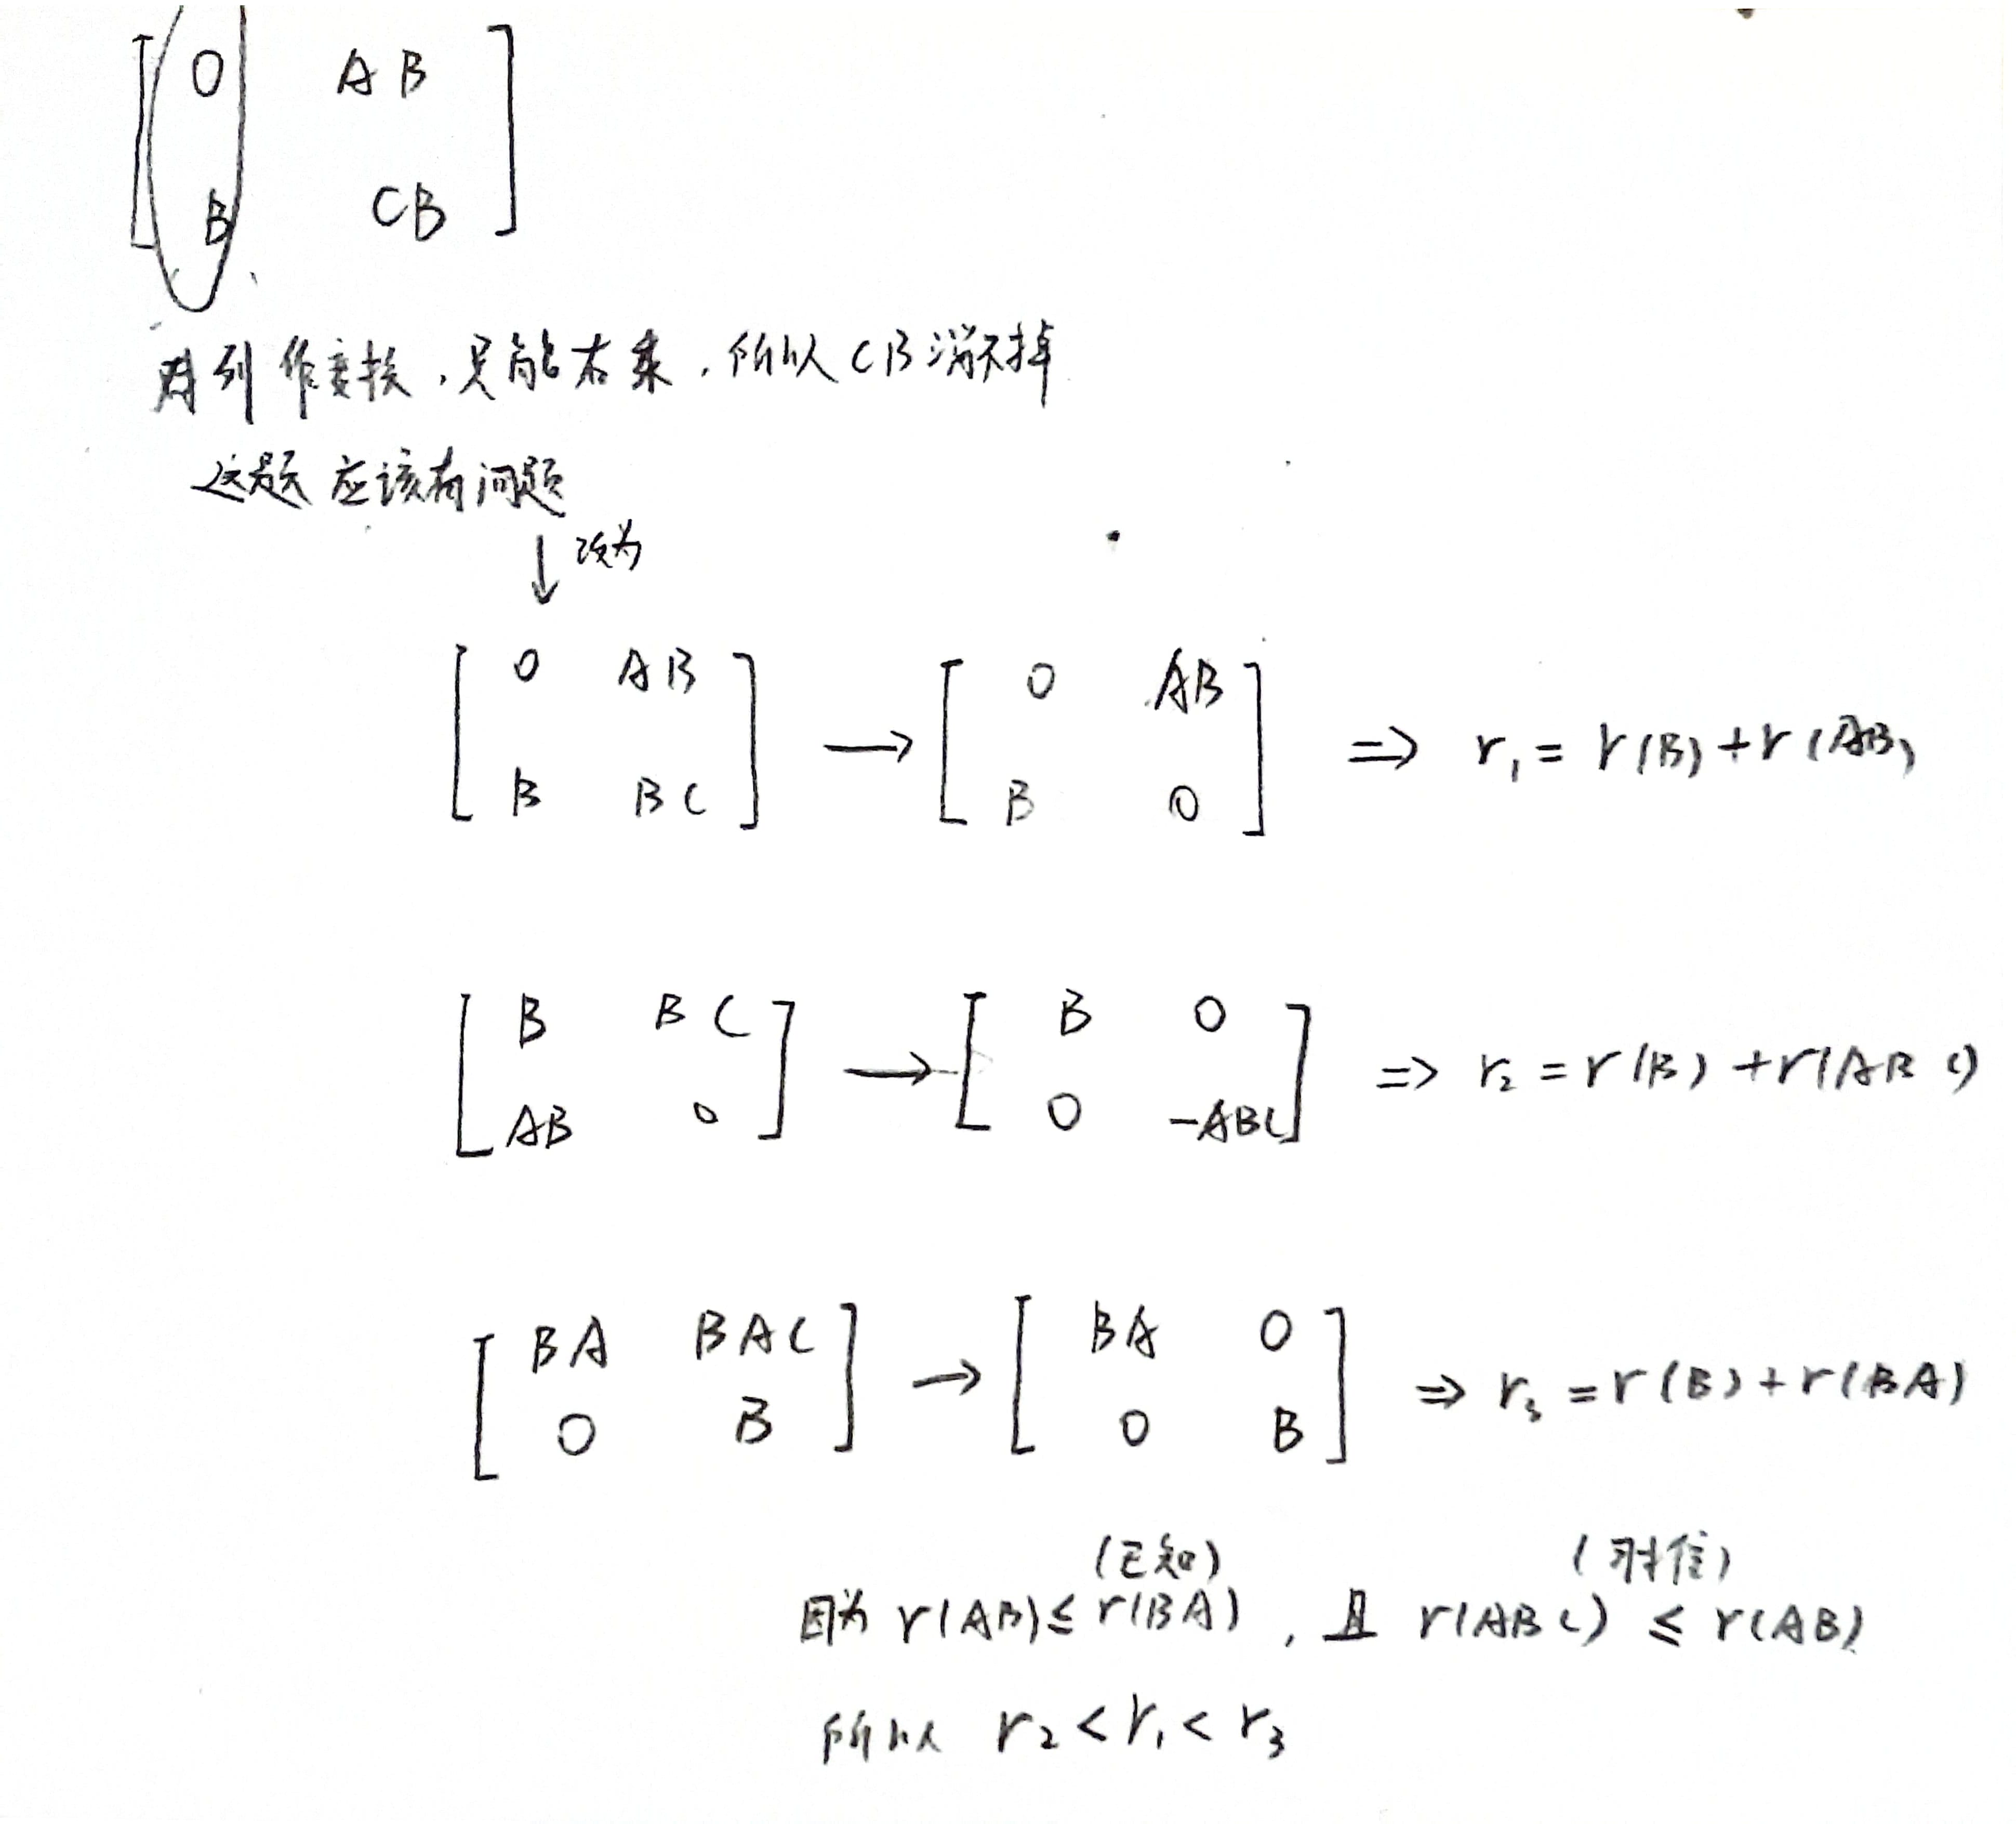 [ O AB
B CB ]
对列作变换，只能右乘，所以CB消不掉
这题应该有问题
↓ 改为
[ 0 AB
B BC ] → [ 0 AB
B 0 ] ⇒ r₁ = r(B) + r(AB)
[ B BC
AB 0 ] → [ B 0
0 -ABC ] ⇒ r₂ = r(B) + r(ABC)
[ BA BAC
0 B ] → [ BA 0
0 B ] ⇒ r₃ = r(B) + r(BA)
(已知)
因为 r(AB) ≤ r(BA)，且 r(ABC) ≤ r(AB)
所以 r₂ < r₁ < r₃